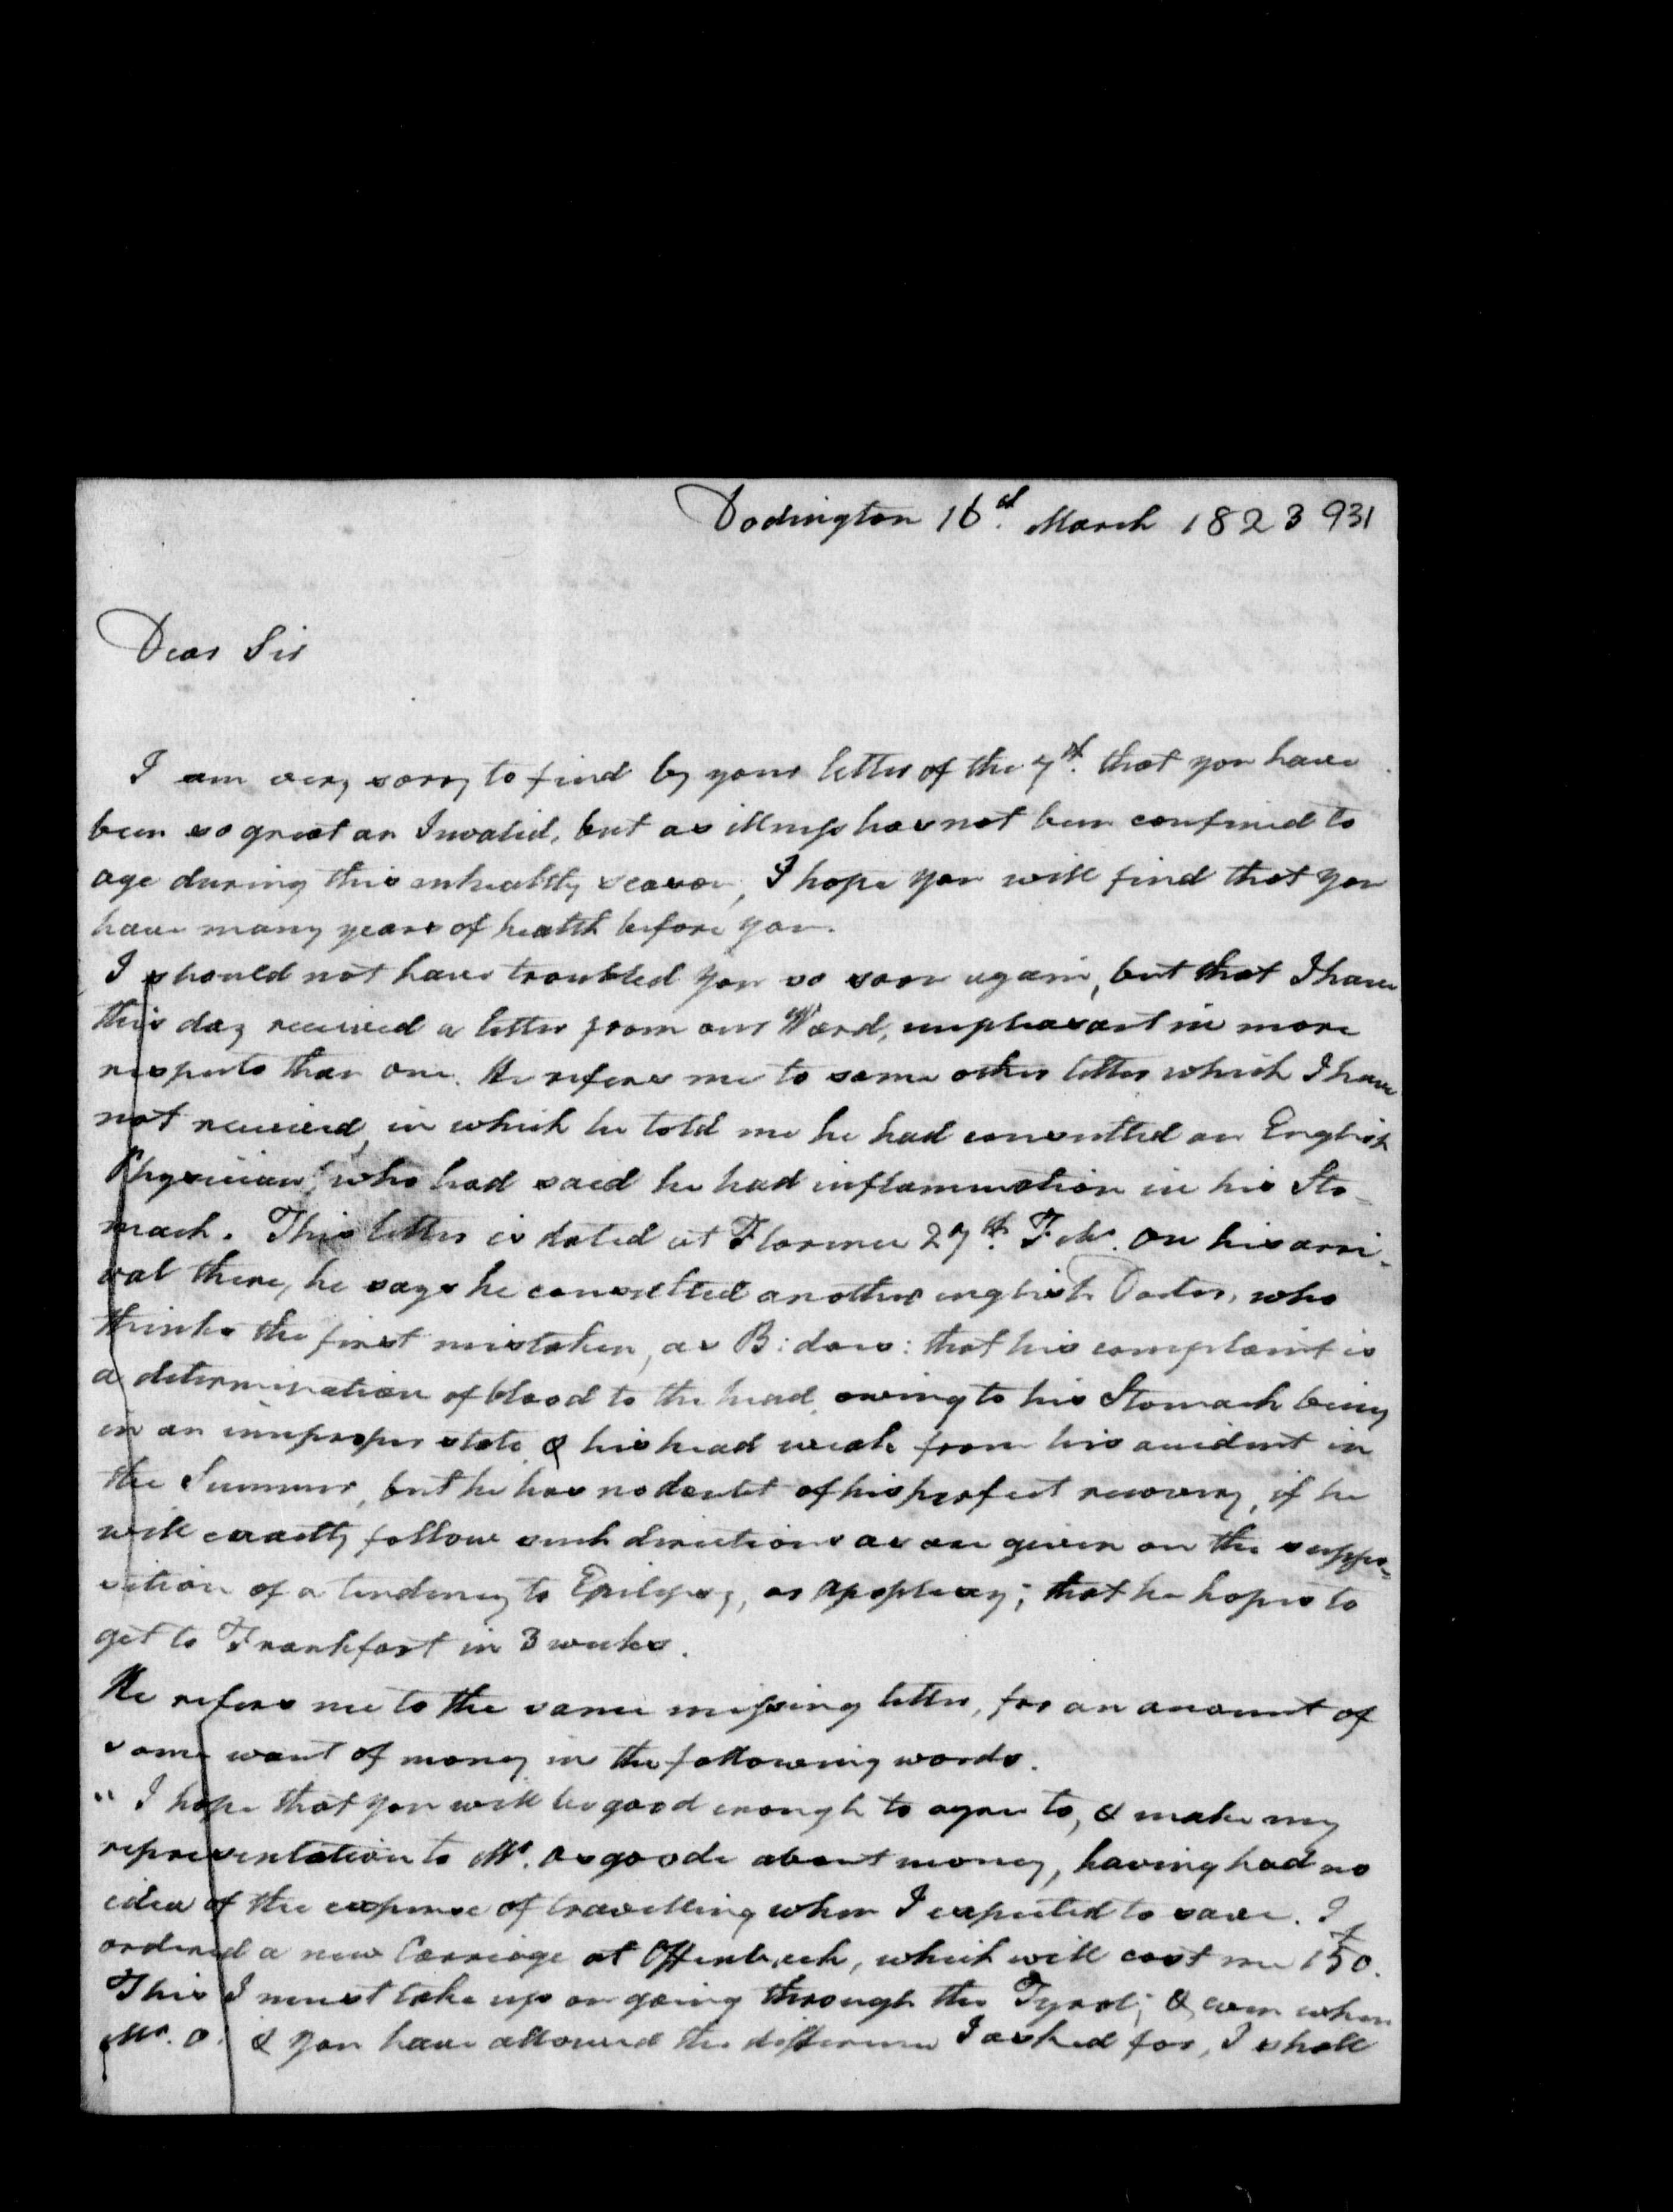 Dodington 16th. March 1823 931
Dear Sir
I am very sorry to find by your letter of the 7th. that you have
been so great an Invalid, but as illness has not been confined to
age during this unhealthy season, I hope you will find that you
have many years of health before you.
I should not have troubled you so soon again, but that I have
this day received a letter from our Ward, unpleasant in more
respects than one. He refers me to some other letter which I have
not received, in which he told me he had consulted an English
Physician, who had said he had inflammation in his Sto-
mach. This letter is dated at Florence 27th. Feb. On his arri-
val there, he says he consulted another english Doctor, who
thinks the first mistaken, as B: does: that his complaint is
a determination of blood to the head, owing to his Stomach being
in an improper state, & his head weak from his accident in
the Summer, but he has no doubt of his perfect recovery, if he
will exactly follow such directions as are given on the suppo-
sition of a tendency to Epilepsy, or apoplexy; that he hopes to
get to Frankfort in 3 weeks.
He refers me to the same missing letter, for an account of
some want of money in the following words.
"I hope that you will be good enough to agree to, & make my
representation to Mr. Osgoode about money, having had no
idea of the expense of travelling when I expected to save. I
ordered a new Carriage at Offenbach, which will cost me £150.
This I must take up on going through the Tyrol; & even when
Mr. O. & you have allowed the difference I asked for, I shall